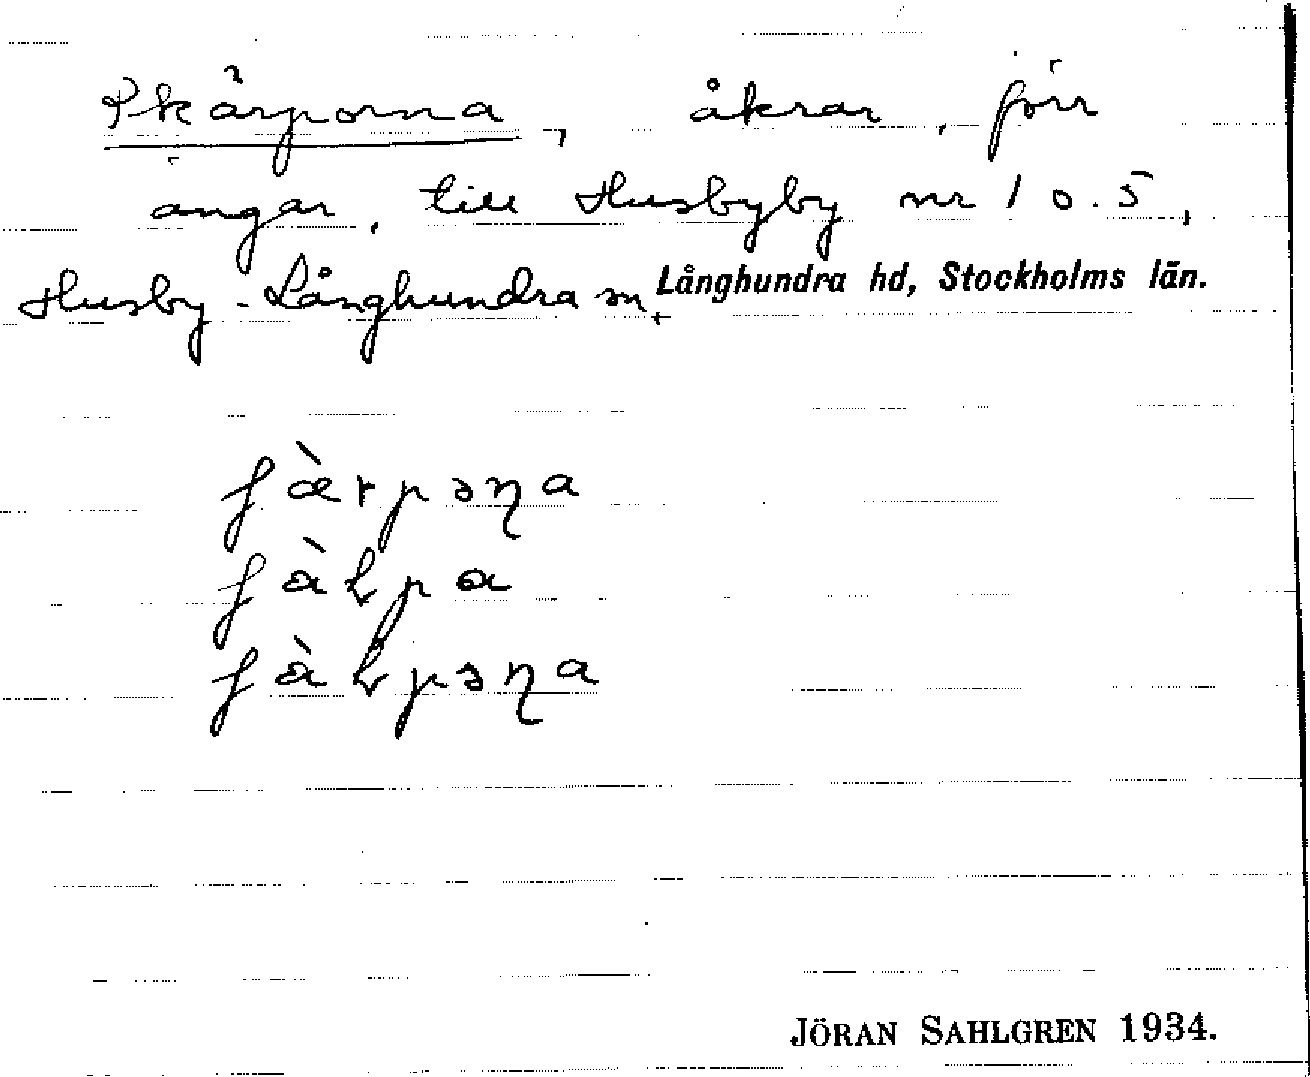 Skärporna, åkrar, förr
ängar, till Husbyby nr 1 o. 5,
Husby-Långhundra sn, Långhundra hd, Stockholms län.
ʃæ̀rpəɳa
ʃàɽpa
ʃàɽpəɳa
JÖRAN SAHLGREN 1934.